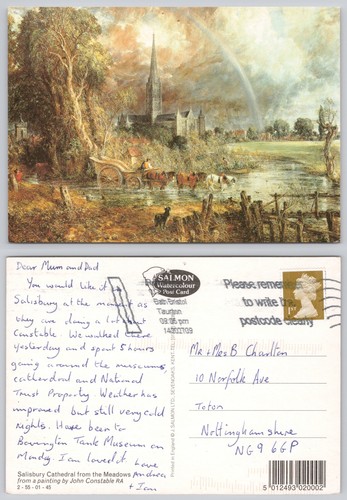 Dear Mum and Dad
You would like it in
Salisbury at the moment as
they are doing a lot about
Constable. We walked there
yesterday and spent 5 hours
going around the museums,
cathedral and National
Trust Property. Weather has
improved but still very cold
nights. Have been to
Bovington Tank Museum on
Monday. Ian loved it. Love
Andrea
+ Ian
Salisbury Cathedral from the Meadows
from a painting by John Constable RA
2-55-01-45
SALMON
Watercolour
Post Card
Bristol
Taunton
Please remember
to write the
postcode clearly
1st
Mr + Mrs B Charlton
10 Norfolk Ave
Toton
Nottinghamshire
NG9 6GP
5 012493 020002